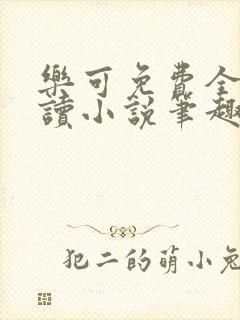 樂可免費全
讀小說筆趣
犯二的萌小兔